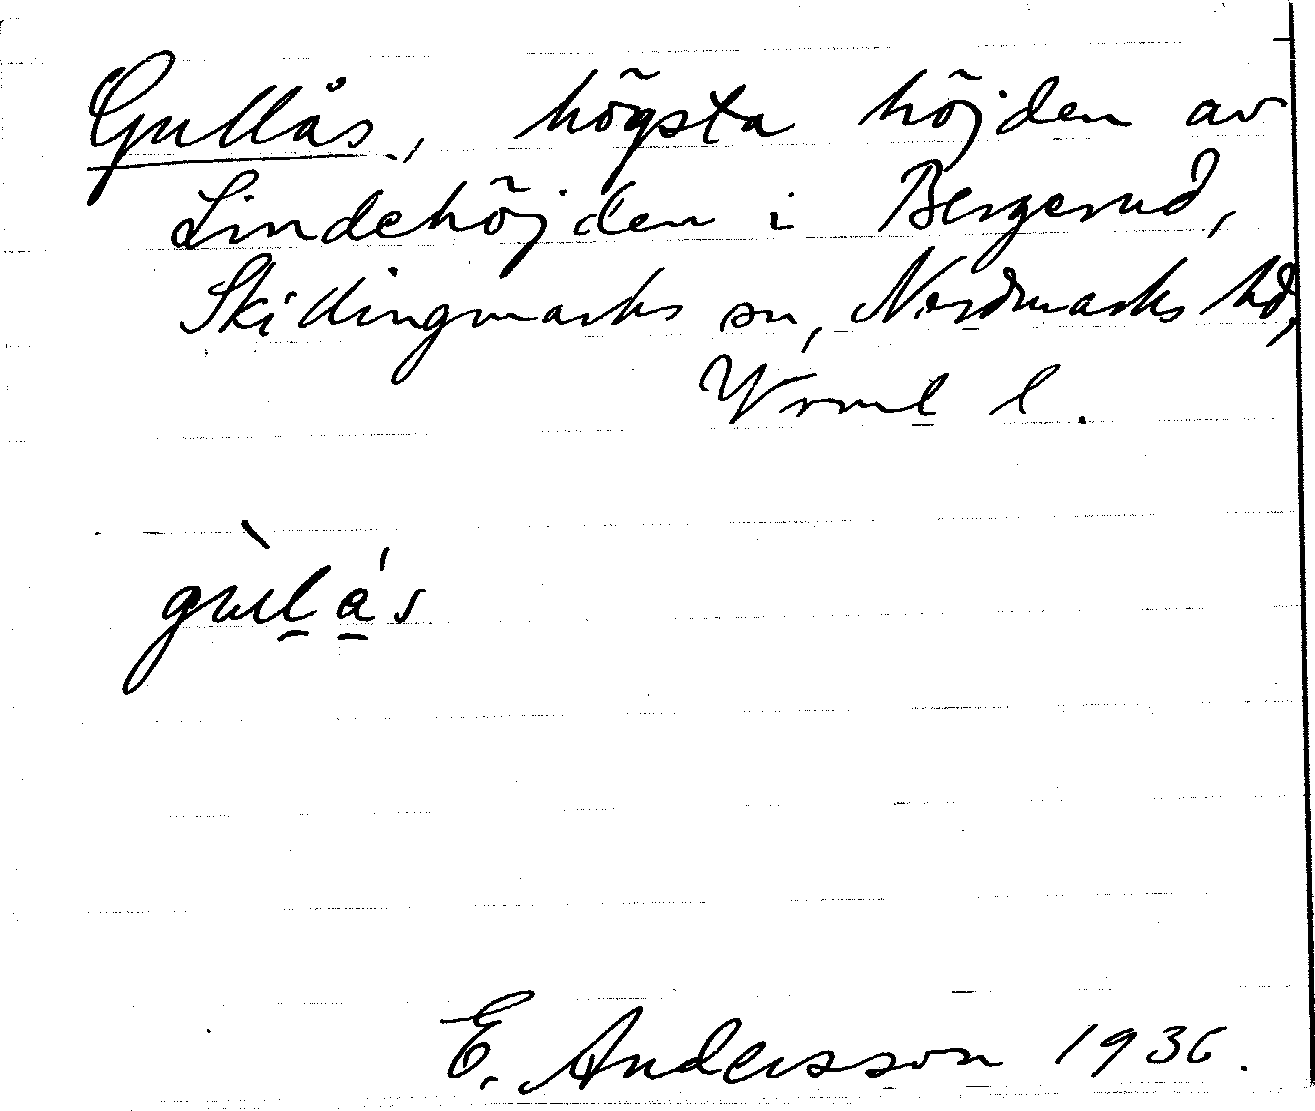 Gullås, högsta höjden av
Lindehöjden i Bergerud,
Skillingmarks sn, Nordmarks hd,
Vrml l.
gùlás
E. Andersson 1936.